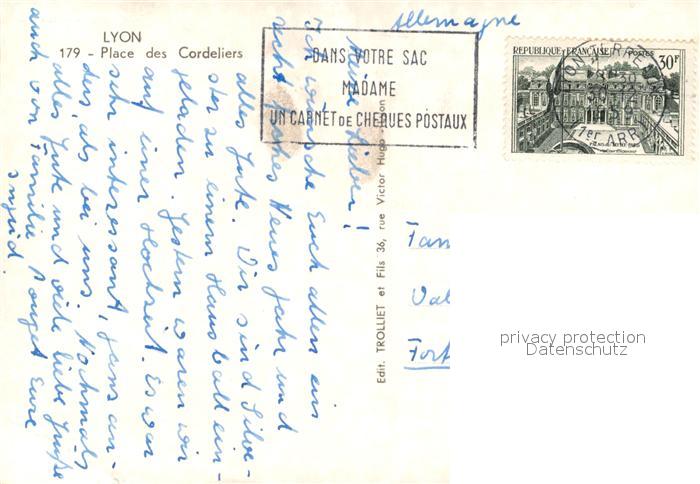 LYON
179 - Place des Cordeliers
Allemagne
DANS VOTRE SAC
MADAME
UN CARNET DE CHEQUES POSTAUX
REPUBLIQUE FRANÇAISE POSTES
30F
LYON
1er ARR
Edit. TROLLIET et Fils 36, rue Victor Hugo - Lyon
Lieber!
Ich wünsche Euch allen ein
recht frohes Neues Jahr und
alles Gute. Wir sind Silve-
ster zu einem Hausball ein-
geladen. Gestern waren wir
auf einer Hochzeit. Es war
sehr interessant, ganz an-
ders als bei uns. Nochmals
alles Gute und viele liebe Grüße
auch von Familie Rouget Eure
Sigrid.
Fam
Val
Fort
privacy protection
Datenschutz